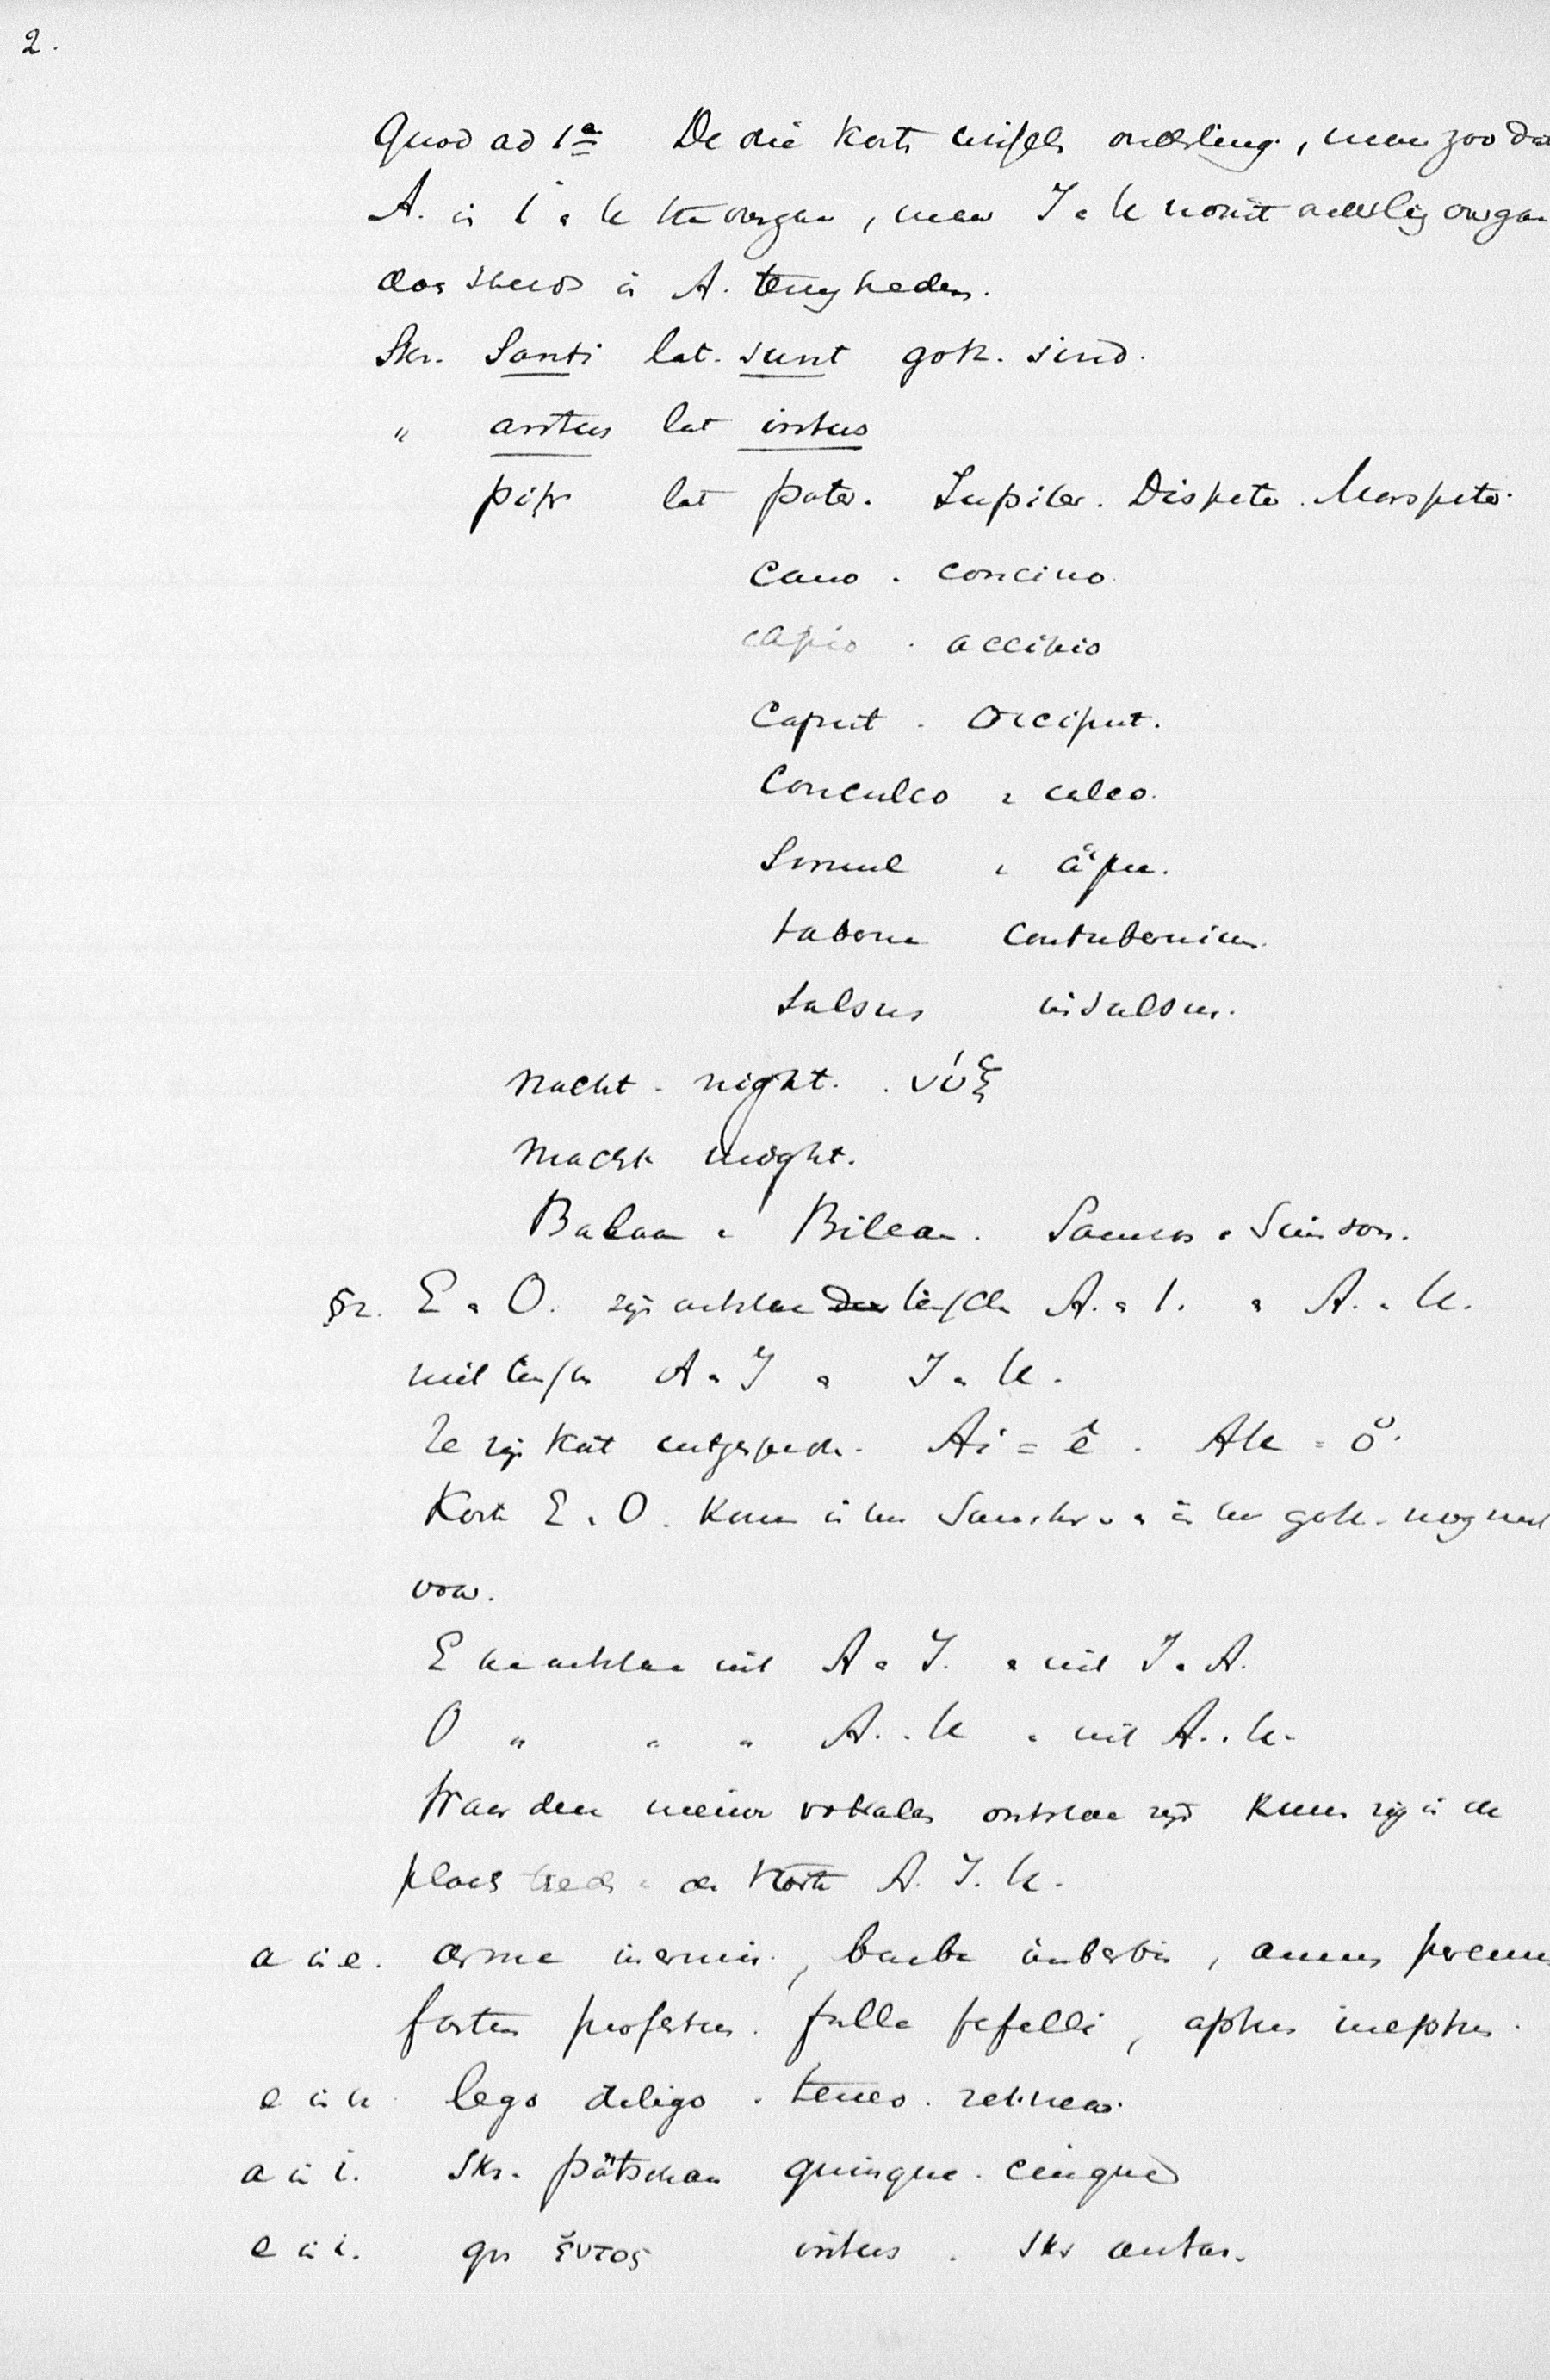 2.
Quod ad 1a De die korte wissels onderling, maar zoo dat
A. in I & U kan overgaan, maar I & U nooit onderling overgaan
in A. terugkeeren.
Skr. Santi lat. sunt goth. sind.
" antus lat intus
pitr lat pater. Jupiter. Dispeter. Marspeter.
cano. concino.
capio. accipio
Caput. Occiput.
Conculco & calco.
Simul & ἅμα.
taberna Contubernium.
salsus insulsus.
Nacht. night. νύξ
Macht might.
Balaam & Bileam. Samson & Simson.
§2. E & O. zijn ontstaan tusschen A. & I. & A. & U.
niet tusschen A & I & I & U.
Ze zijn Ai = ê. AU = ô.
Korte E & O. komen in het Sanskr. & in het goth. nog niet
voor.
E kan ontstaan uit A & I. & uit I & A.
O " " " A. & U & uit A. & U.
Waar deze nieuwe vokalen ontstaan zijn kunnen zij in de
plaats treden de korte A. I. U.
a in e. arma inermis, barba imberbis, annus perennis
fastus profestus. fallo fefelli, aptus ineptus.
e in lego diligo. teneo. retineo.
a in i. Skr. pâtschan quinque. cinque
e in i. gr ἔντος intus. Skr antar.